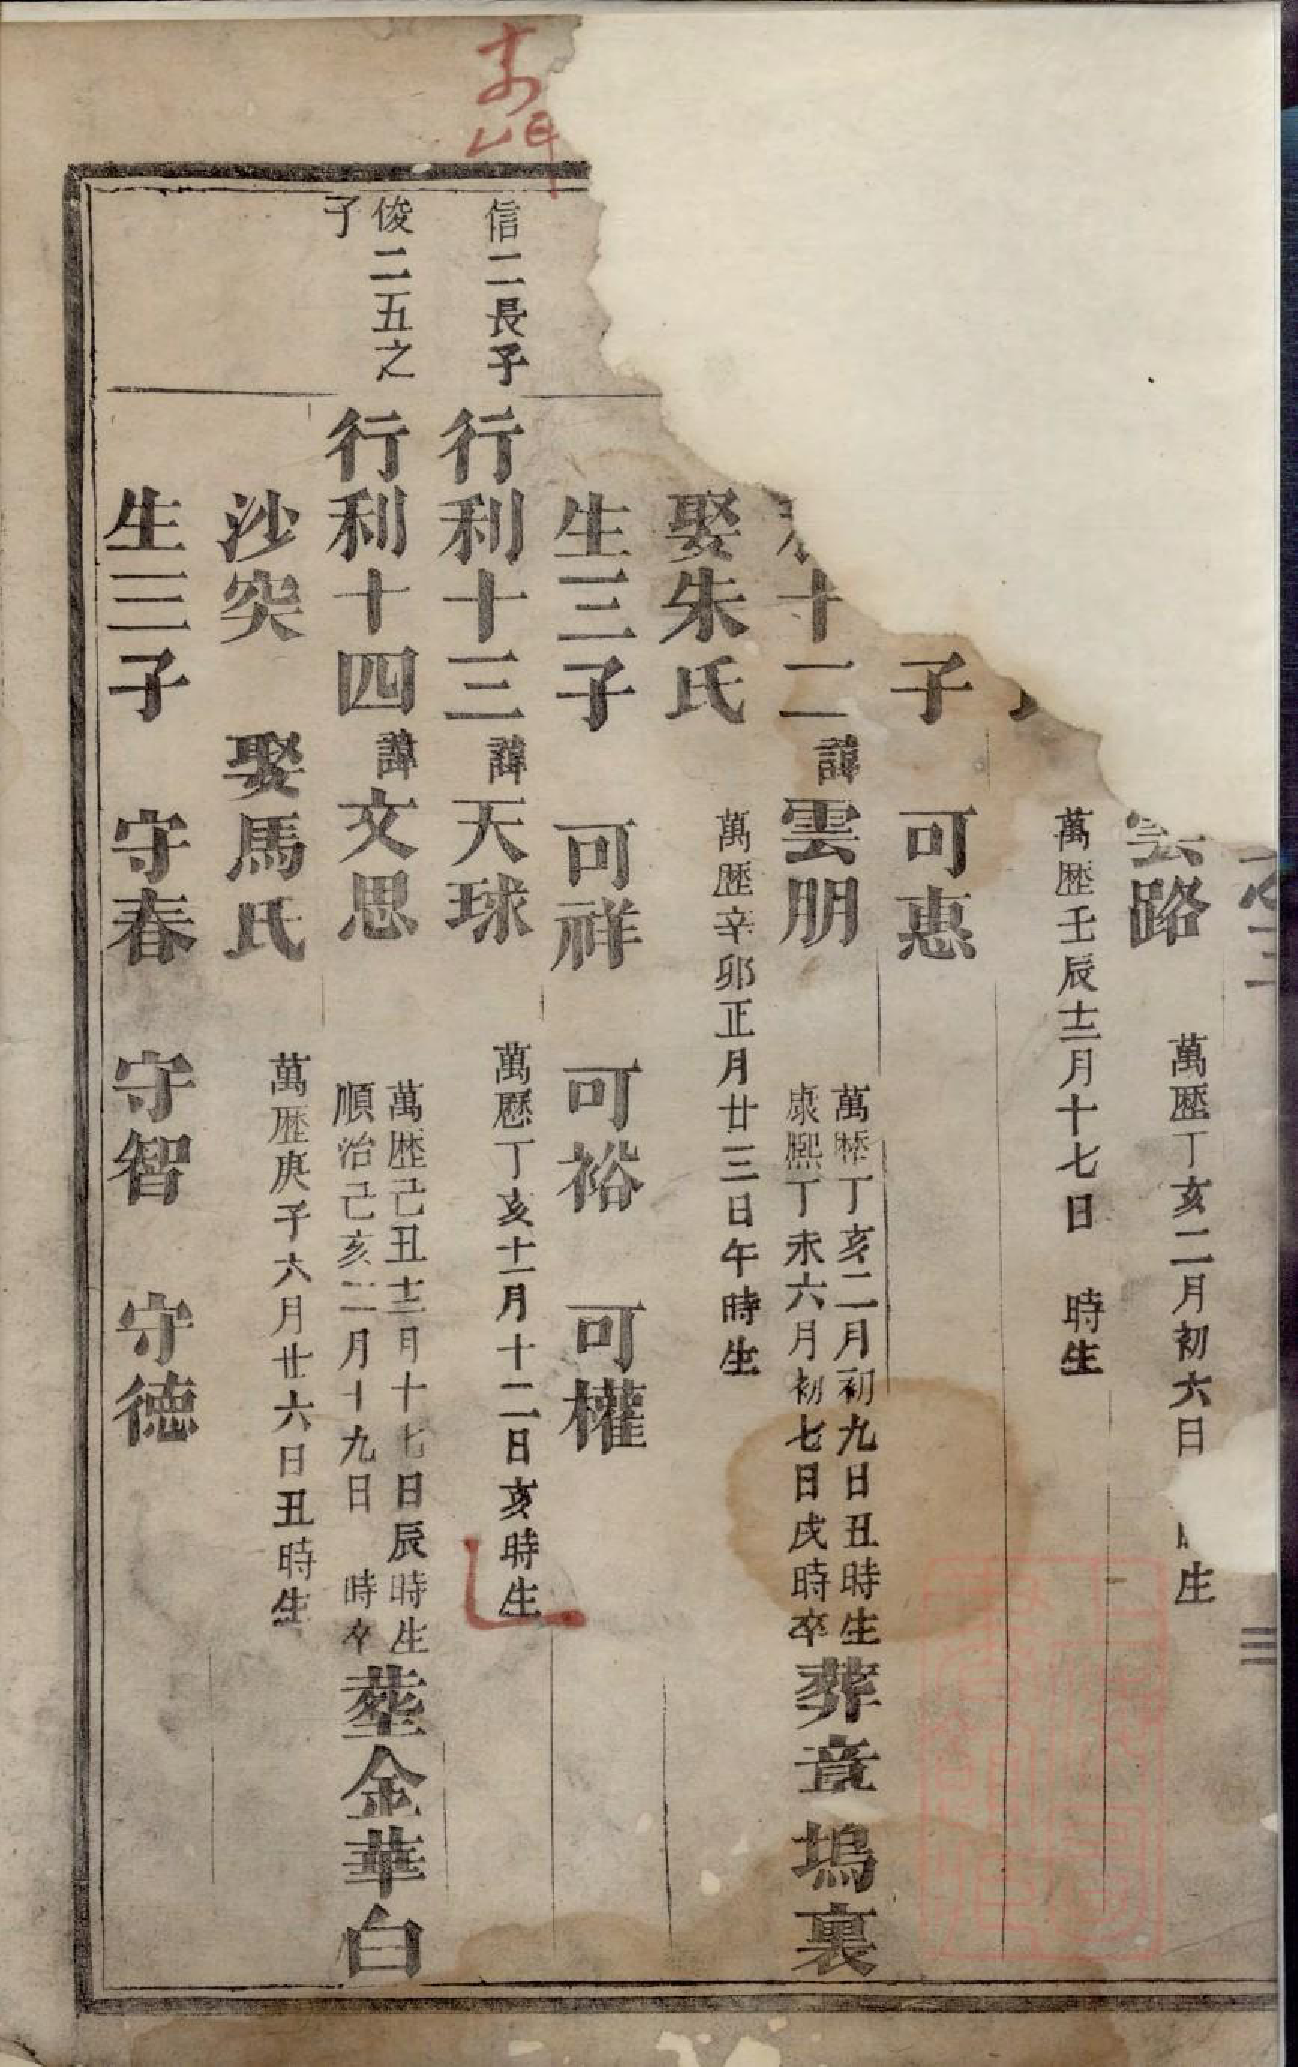 路 萬歷丁亥二月初六日 生
萬歷壬辰十二月十七日 時生
子 可惠
十二 諱雲朋 萬歷丁亥二月初九日丑時生 康熙丁未六月初七日戌時卒 葬章塢裏
娶朱氏 萬歷辛卯正月廿三日午時生
生三子 可祥 可裕 可權
信二長子 行利十三 諱天球 萬歷丁亥十一月十二日亥時生
俊二五之子 行利十四 諱文思 萬歷己丑十二月十七日辰時生 順治己亥二月十九日 時卒 塟金華白
沙突 娶馬氏 萬歷庚子六月廿六日丑時生
生三子 守春 守智 守德